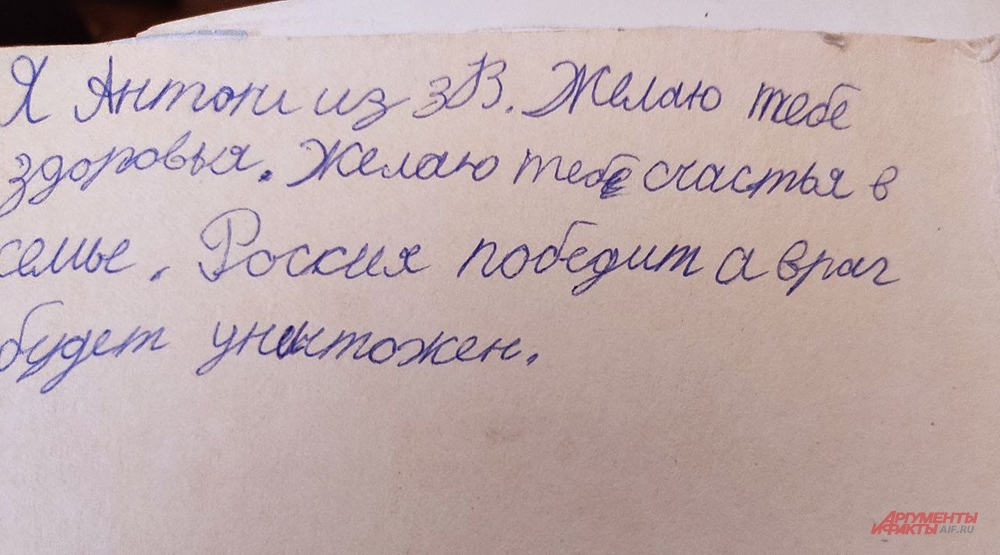 Я Антон из 3В. Желаю тебе
здоровья. Желаю тебе счастья в
семье. Россия победит а враг
будет уничтожен.
АРГУМЕНТЫ
И ФАКТЫ AIF.RU